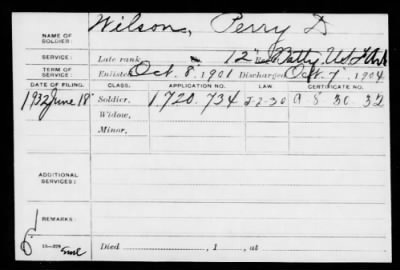 NAME OF SOLDIER: Wilson, Perry D
SERVICE: Late rank, 12" Batty, U.S.
TERM OF SERVICE: Enlisted Oct. 8", 1901 Discharged Oct. 7", 1904
DATE OF FILING. CLASS. APPLICATION NO. LAW. CERTIFICATE NO.
1932 June 18 Soldier. 1,720,734
Widow.
Minor.
ADDITIONAL SERVICES:
REMARKS:
Died , 1 , at